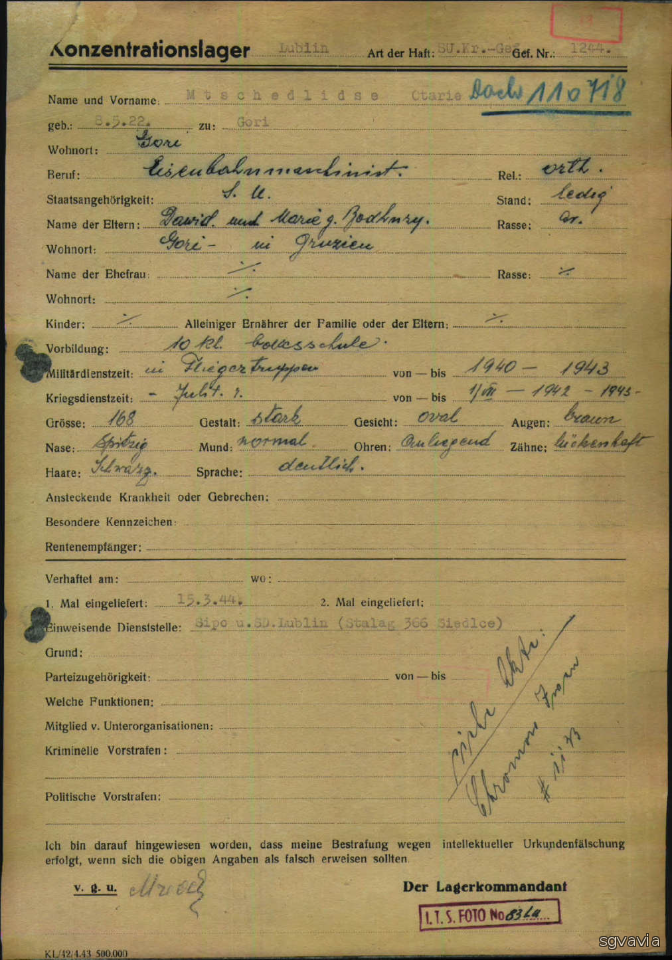 Konzentrationslager Lublin Art der Haft: SU.Kr.-Gef Gef. Nr.: 1244.
Name und Vorname: Mtschedlidse Otarie Dach 110718
geb.: 8.5.22. zu: Gori
Wohnort: Gori
Beruf: Eisenbahnmaschinist. Rel.: orth.
Staatsangehörigkeit: S. U. Stand: ledig
Name der Eltern: Dawid. und Marie g. Rasse: ar.
Wohnort: Gori - in Gruzien
Name der Ehefrau: ·/· Rasse: ·/·
Wohnort: ·/·
Kinder: ·/· Alleiniger Ernährer der Familie oder der Eltern: ·/·
Vorbildung: 10 kl. volksschule.
Militärdienstzeit: in Fliegertruppen von — bis 1940 - 1943
Kriegsdienstzeit: von — bis 1/VII - 1942 - 1943-
Grösse: 168 Gestalt: stark Gesicht: oval Augen: braun
Nase: Spitzig Mund: normal. Ohren: Anliegend Zähne: lückenhaft
Haare: Schwarz. Sprache: deutlich.
Ansteckende Krankheit oder Gebrechen:
Besondere Kennzeichen:
Rentenempfänger:
Verhaftet am: wo:
1. Mal eingeliefert: 15.3.44. 2. Mal eingeliefert:
Einweisende Dienststelle: Sipo u.SD.Lublin (Stalag 366 Siedlce)
Grund:
Parteizugehörigkeit: von — bis
Welche Funktionen:
Mitglied v. Unterorganisationen:
Kriminelle Vorstrafen:
siehe Akte:
Chromow Iwan
Politische Vorstrafen:
Ich bin darauf hingewiesen worden, dass meine Bestrafung wegen intellektueller Urkundenfälschung
erfolgt, wenn sich die obigen Angaben als falsch erweisen sollten.
v. g. u. Der Lagerkommandant
I. T. S. FOTO No
KL/42/4.43 500.000
sgvavia